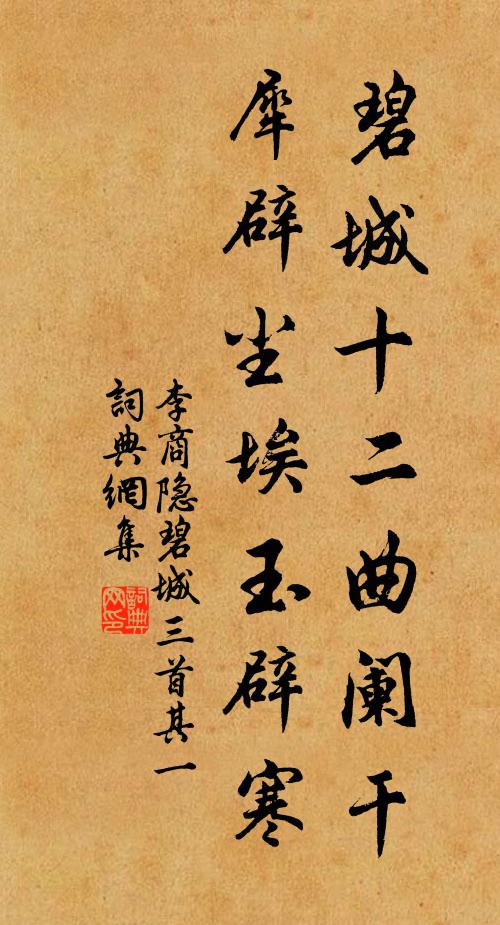 碧城十二曲阑干
犀辟尘埃玉辟寒
李商隐碧城三首其一
詞典網集
詞典网印